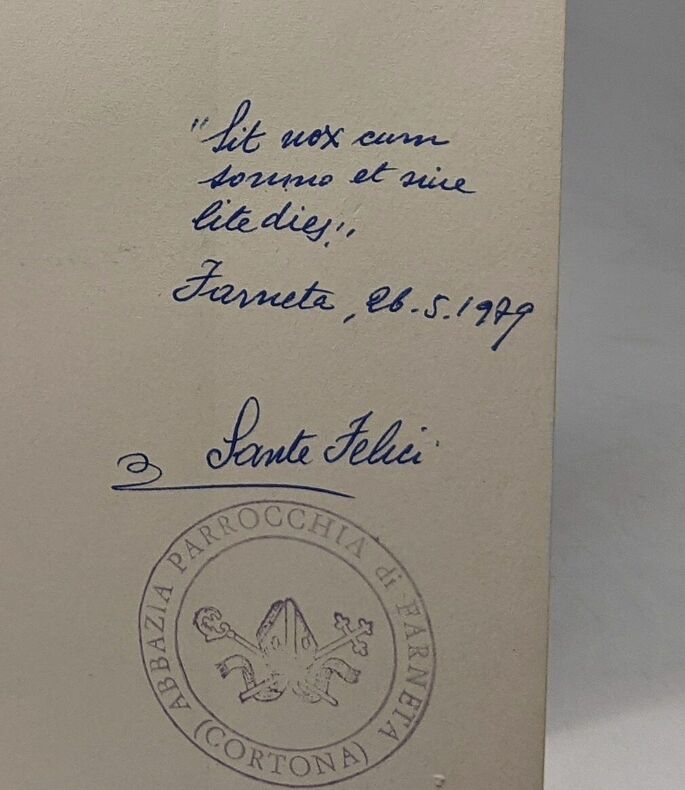 "Sit nox cum
somno et sine
lite dies"
Farneta, 26.5.1979
Sante Felici
ABBAZIA PARROCCHIA di FARNETA
(CORTONA)